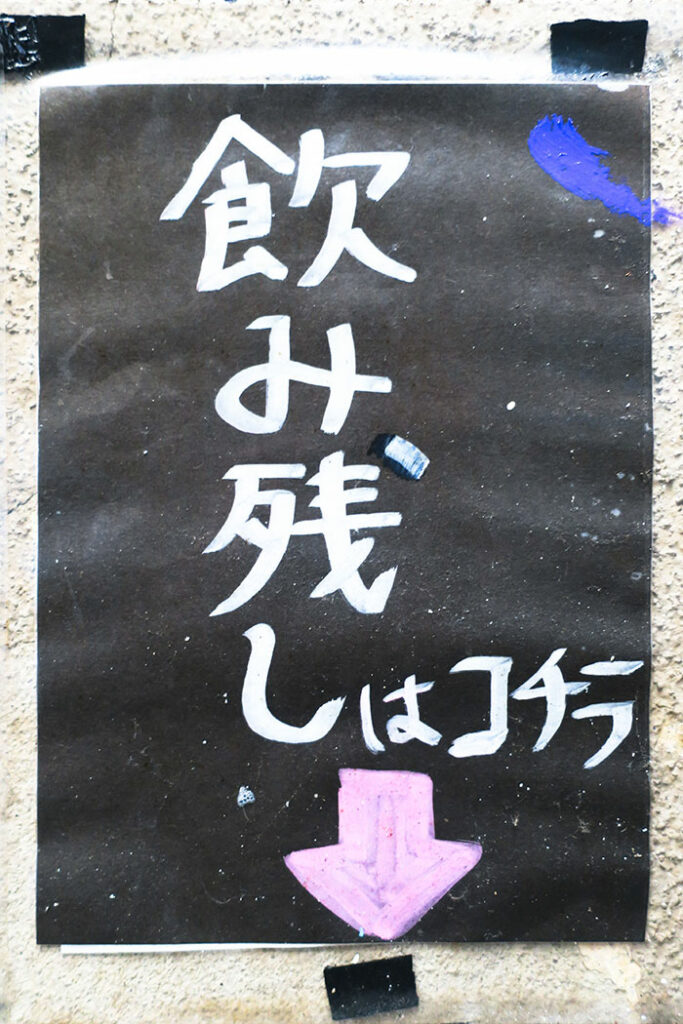 飲み残し
はコチラ